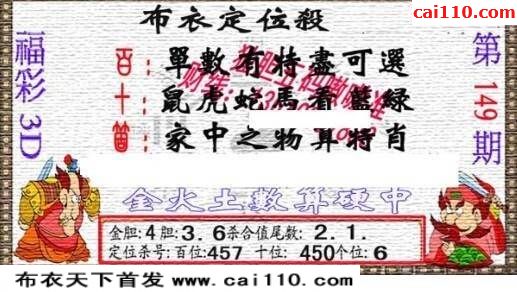 cai110.com
布衣定位殺
福彩3D
第149期
百：單數有特盡可選
十：鼠虎蛇馬看籃綠
箇：家中之物算特肖
金火土數算硬中
金胆:4胆:3.6杀合值尾数: 2.1.
定位杀号:百位:457 十位: 450个位:6
布衣天下首发 www.cai110.com